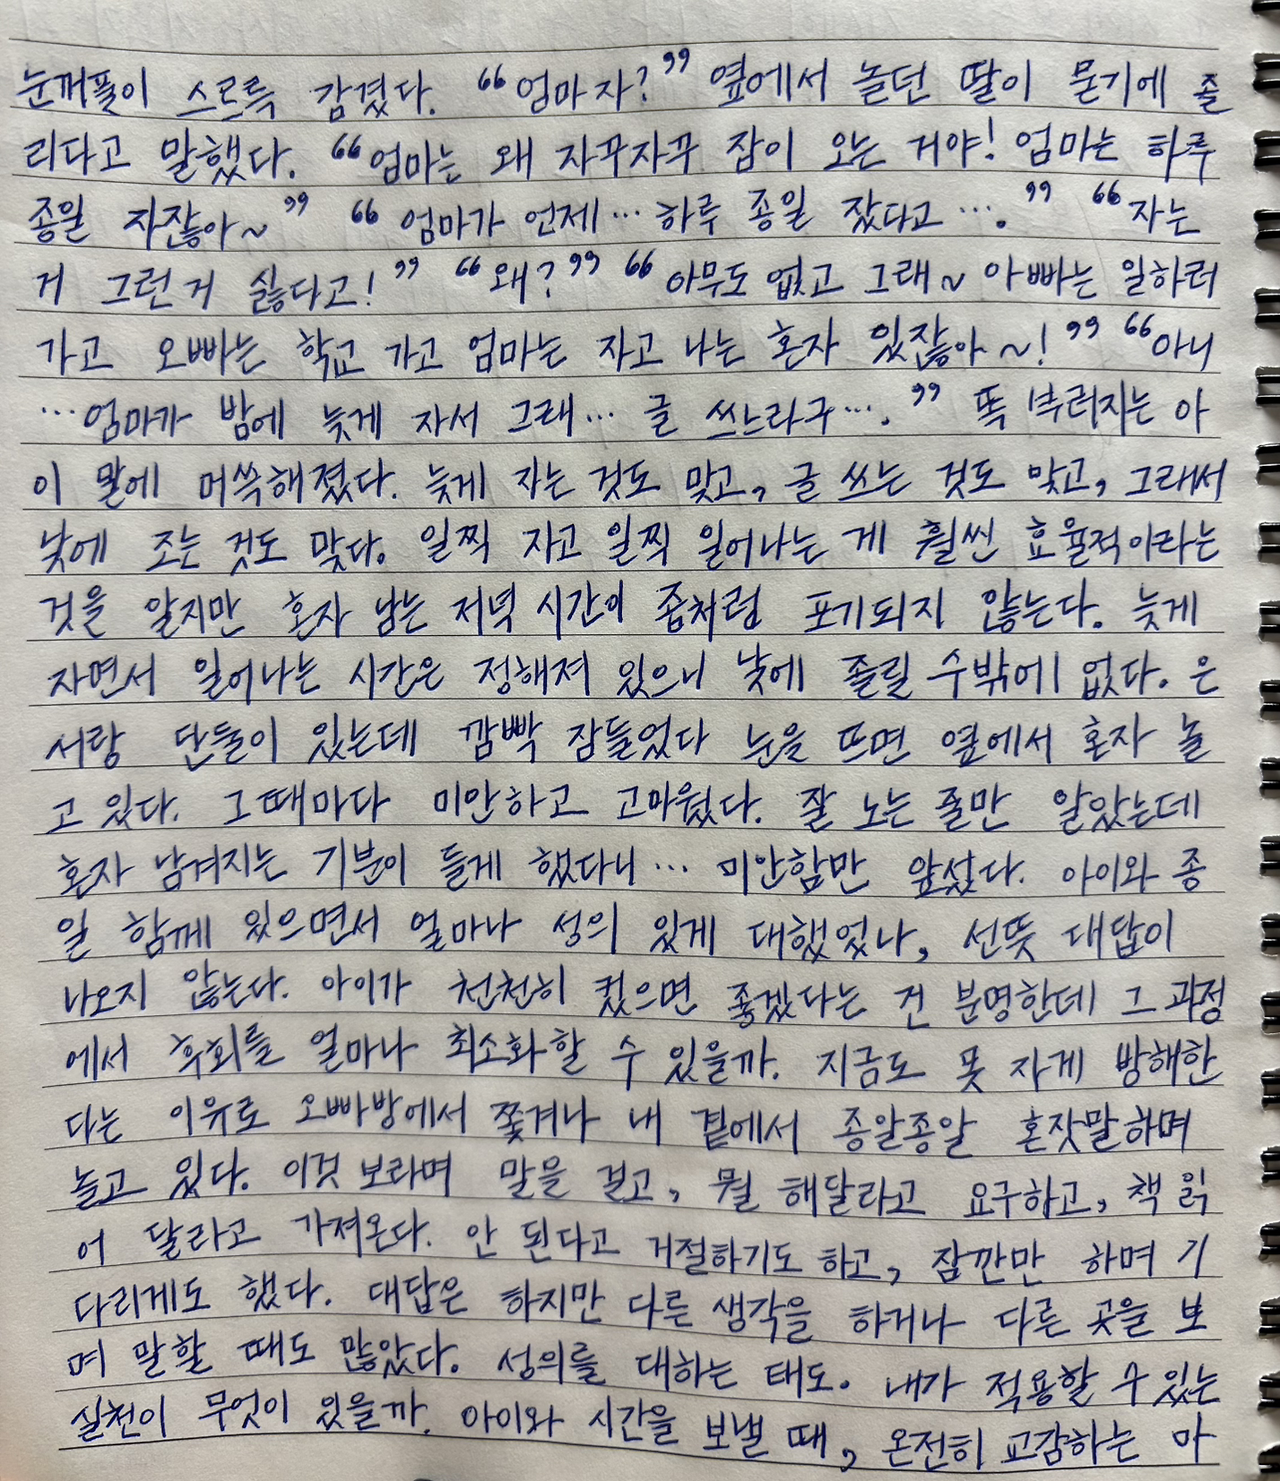 눈꺼풀이 스르륵 감겼다. “엄마 자?” 옆에서 놀던 딸이 묻기에 졸
리다고 말했다. “엄마는 왜 자꾸자꾸 잠이 오는 거야! 엄마는 하루
종일 자잖아~” “엄마가 언제… 하루 종일 잤다고….” “자는
거 그런 거 싫다고!” “왜?” “아무도 없고 그래~ 아빠는 일하러
가고 오빠는 학교 가고 엄마는 자고 나는 혼자 있잖아~!” “아니
…엄마가 밤에 늦게 자서 그래… 글 쓰느라구….” 똑 부러지는 아
이 말에 머쓱해졌다. 늦게 자는 것도 맞고, 글 쓰는 것도 맞고, 그래서
낮에 조는 것도 맞다. 일찍 자고 일찍 일어나는 게 훨씬 효율적이라는
것을 알지만 혼자 남는 저녁 시간이 좀처럼 포기되지 않는다. 늦게
자면서 일어나는 시간은 정해져 있으니 낮에 졸릴 수밖에 없다. 은
서랑 단둘이 있는데 깜빡 잠들었다 눈을 뜨면 옆에서 혼자 놀
고 있다. 그때마다 미안하고 고마웠다. 잘 노는 줄만 알았는데
혼자 남겨지는 기분이 들게 했다니… 미안함만 앞섰다. 아이와 종
일 함께 있으면서 얼마나 성의 있게 대했었나, 선뜻 대답이
나오지 않는다. 아이가 천천히 컸으면 좋겠다는 건 분명한데 그 과정
에서 후회를 얼마나 최소화할 수 있을까. 지금도 못 자게 방해한
다는 이유로 오빠방에서 쫓겨나 내 곁에서 종알종알 혼잣말하며
놀고 있다. 이것 보라며 말을 걸고, 뭘 해달라고 요구하고, 책 읽
어 달라고 가져온다. 안 된다고 거절하기도 하고, 잠깐만 하며 기
다리게도 했다. 대답은 하지만 다른 생각을 하거나 다른 곳을 보
며 말할 때도 많았다. 성의를 대하는 태도. 내가 적용할 수 있는
실천이 무엇이 있을까. 아이와 시간을 보낼 때, 온전히 교감하는 마